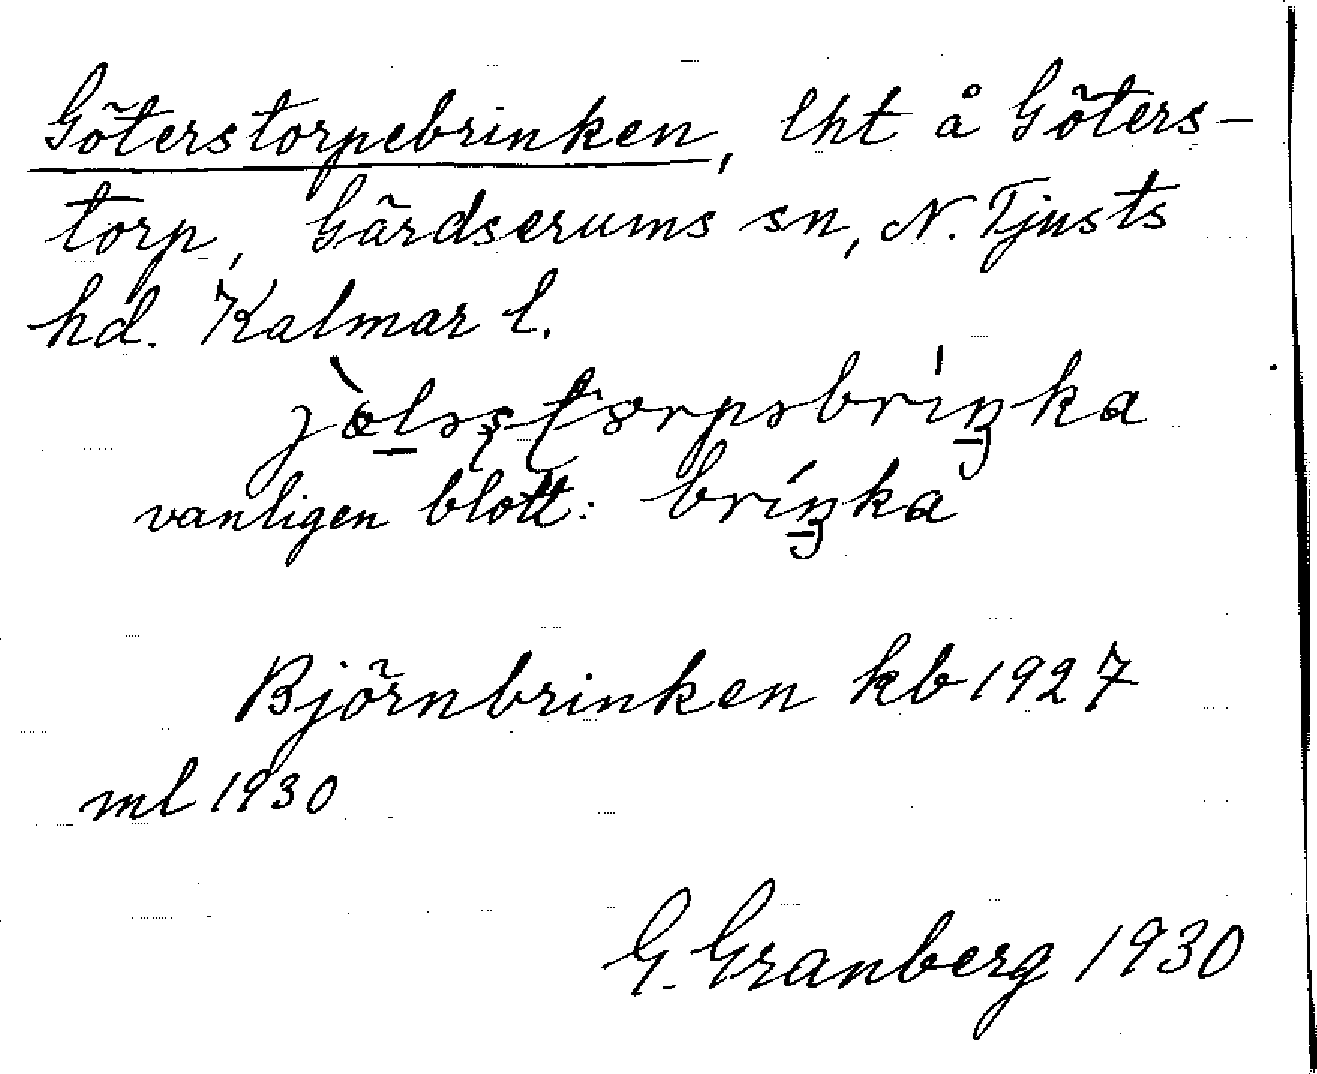 Göterstorpebrinken, lht å Göters-
torp, Gärdserums sn, N. Tjusts
hd. Kalmar l.
vanligen blott: briŋka
Björnbrinken kb 1927
ml 1930
G. Granberg 1930